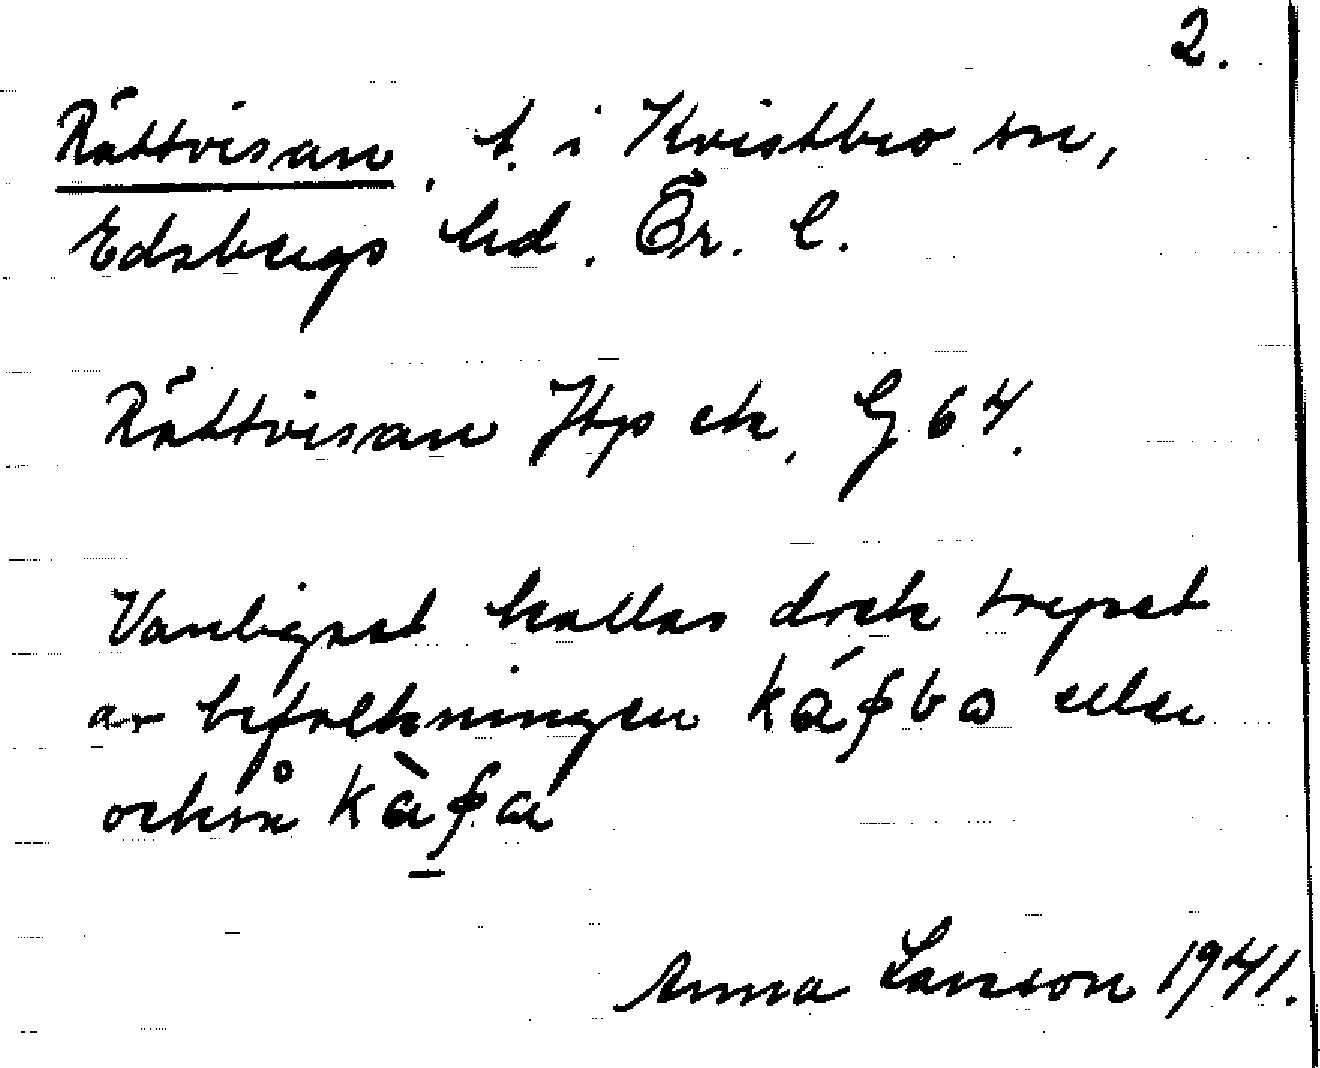 2.
Rättvisan, t. i Kvistbro sn,
Edsbergs hd. Ör. l.
Rättvisan Jtp ek, G 64.
Vanligast kallas dock torpet
av befolkningen eller
också
Anna Larsson 1941.